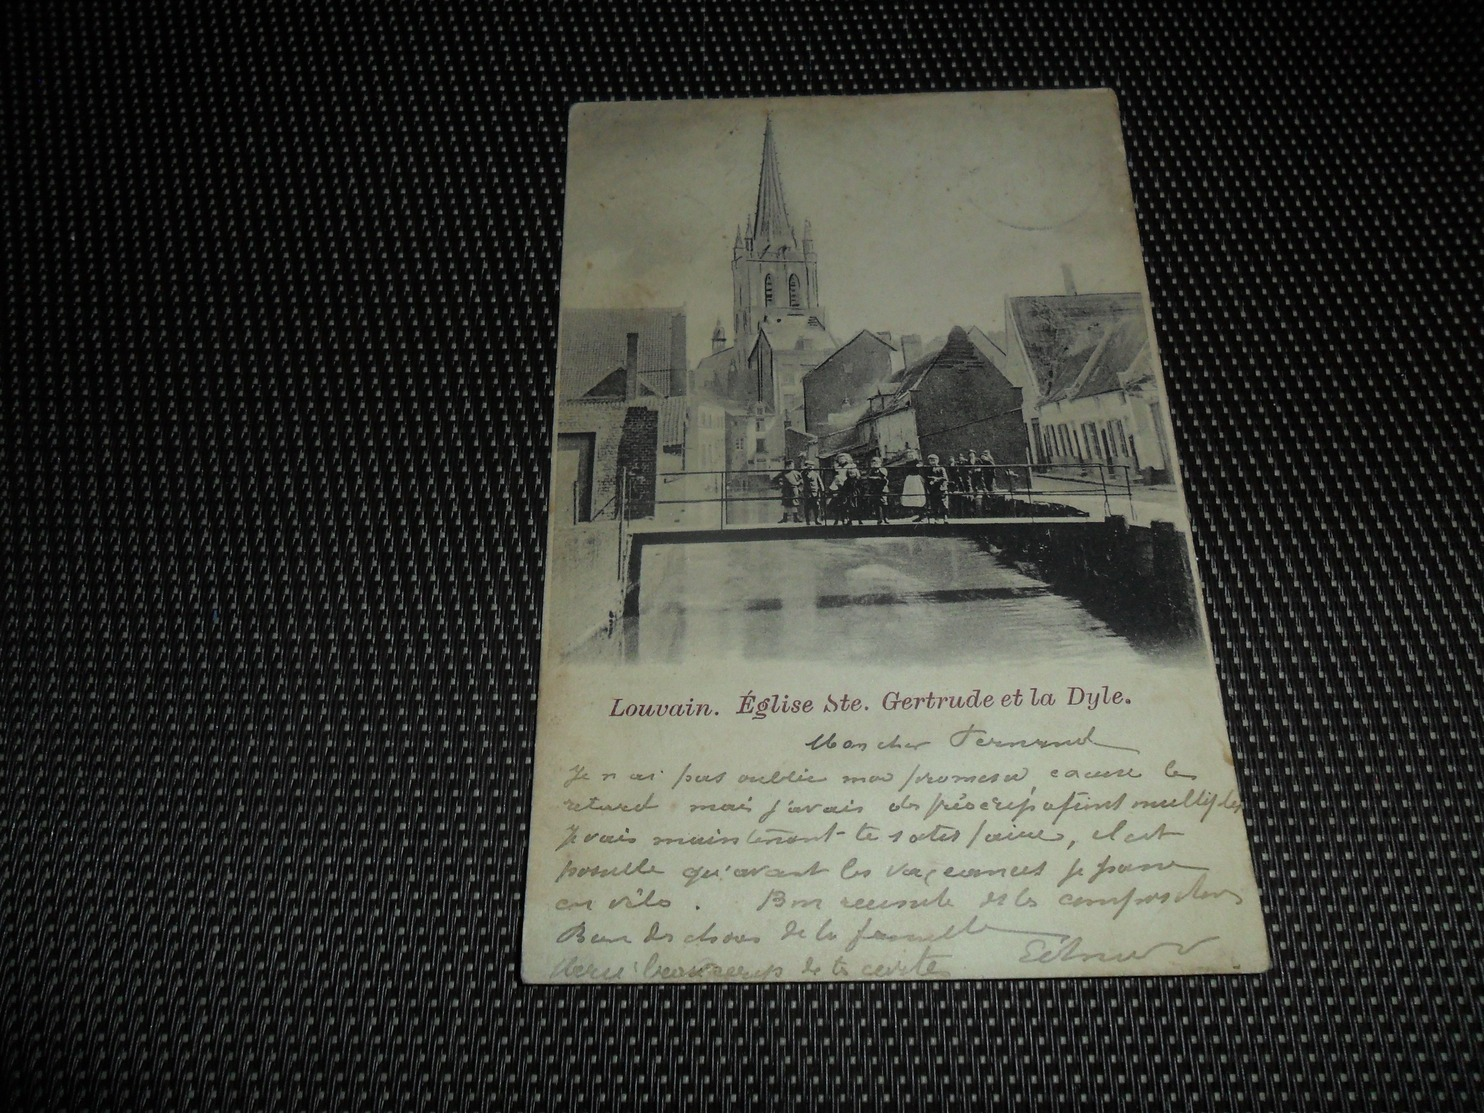 Louvain. Église Ste. Gertrude et la Dyle.
Mon cher Fernand
Je n ai pas oublié ma promesse excuse le
retard mais j'avais des multiples
Je vais maintenant te satisfaire, il est
possible qu'avant les vaçances je passe
en vélo. Bon réussite de tes compositions
Bien des choses de la famille
Merci beaucoup de ta carte Edmond